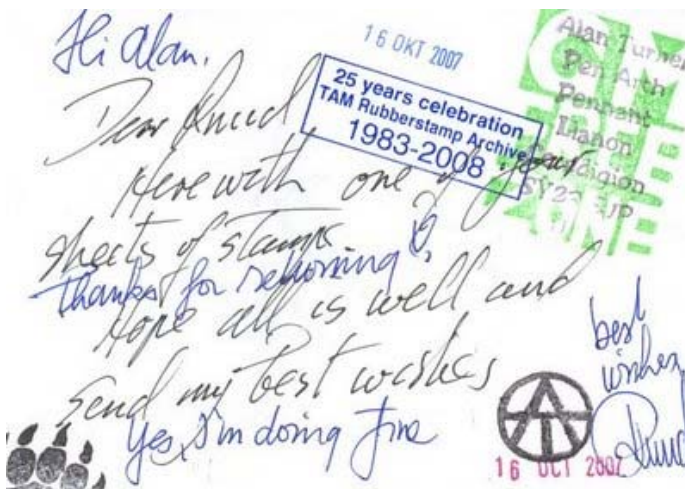 Hi Alan.
16 OKT 2007
25 years celebration
TAM Rubberstamp Archive
1983-2008
Alan Turner
Pen Arth
Pennant
Llanon
Ceredigion
SY23 5JP
GM
FREE
ZONE
Dear Ruud
Herewith one of your
sheets of stamps
Thanks for returning
Hope all is well and
send my best wishes
Yes, I'm doing fine
best
wishes,
Ruud
16 OCT 2007